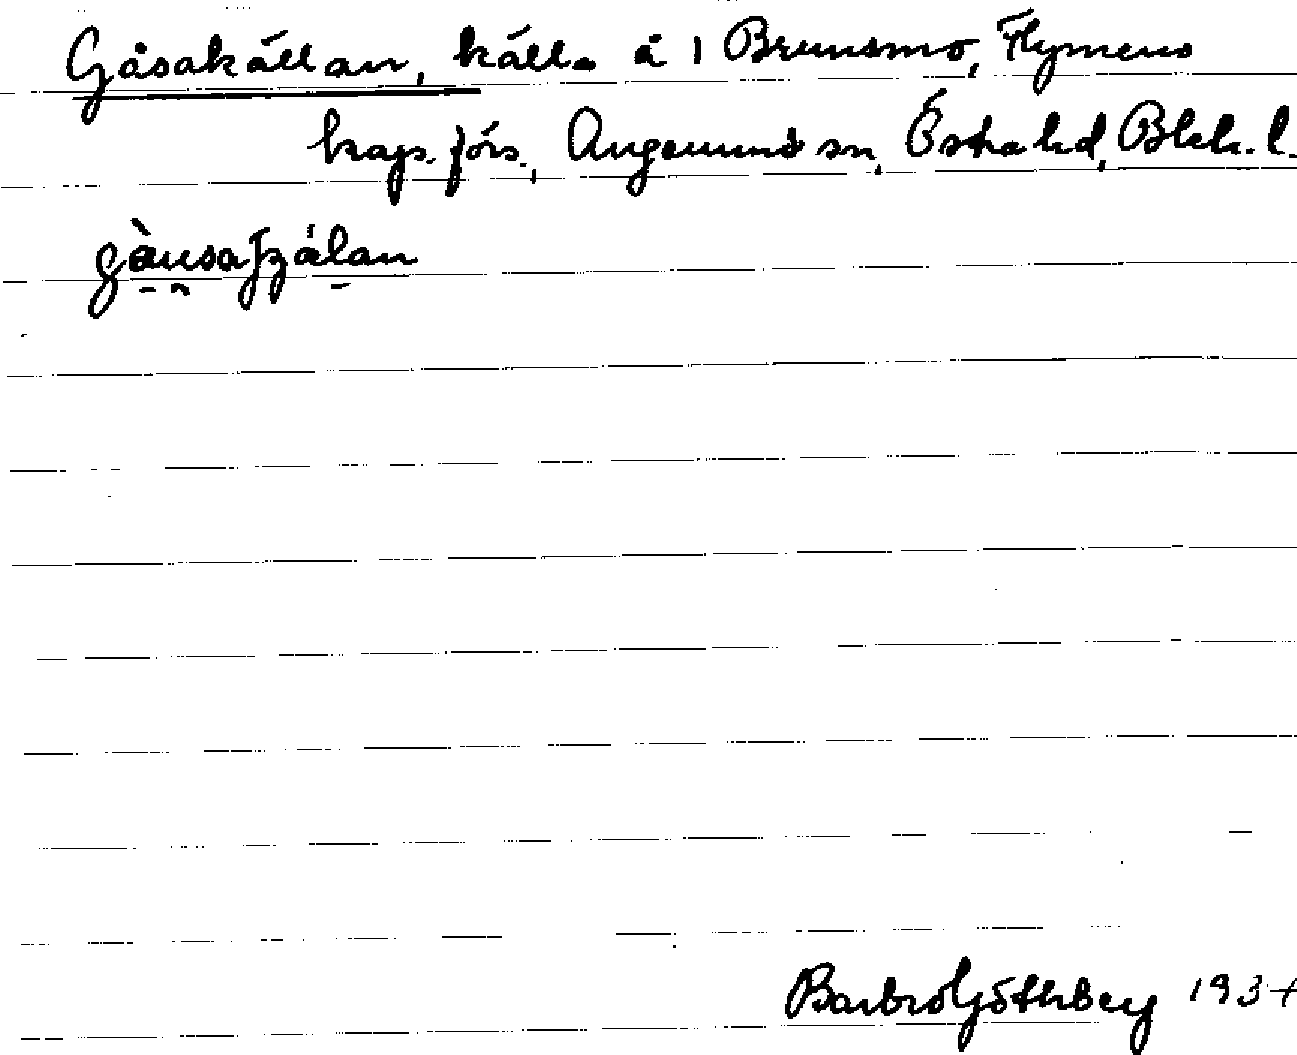 Gåsakällan, källa å 1 Brunsmo, Flymens
kap.förs., Augerums sn, Östra hd, Blek. l.
Barbro Göthberg 193